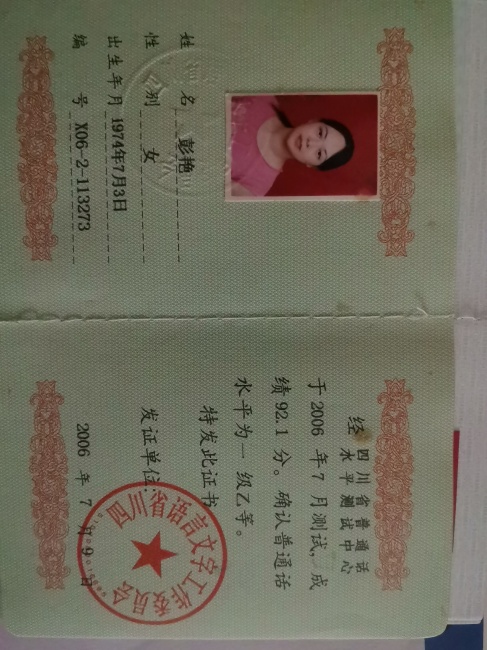 姓 名 彭艳
性 别 女
出生年月 1974年7月3日
编 号 X06-2-113273
经 四川省普通话
水平测试中心
于 2006 年 7 月测试,成
绩 92.1 分。确认普通话
水平为一级乙等。
特发此证书
发证单位:
2006 年 7 月 9 日
四川省语言文字工作委员会